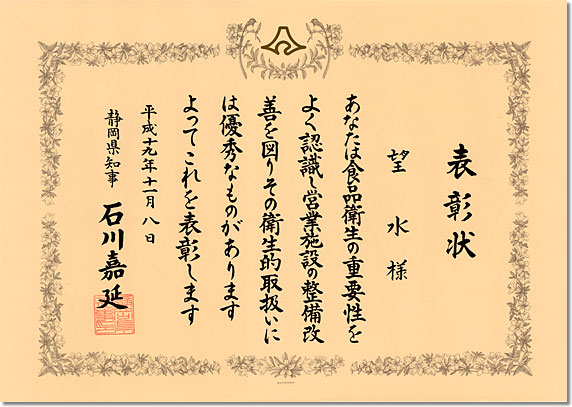 表彰状
望水様
あなたは食品衛生の重要性を
よく認識し営業施設の整備改
善を図りその衛生的取扱いに
は優秀なものがあります
よってこれを表彰します
平成十九年十一月八日
静岡県知事 石川嘉延